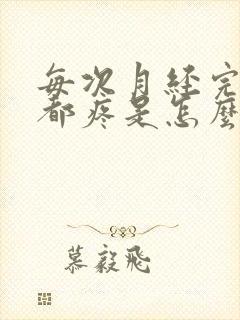 每次月经完
都疼是怎麼
慕毅飛